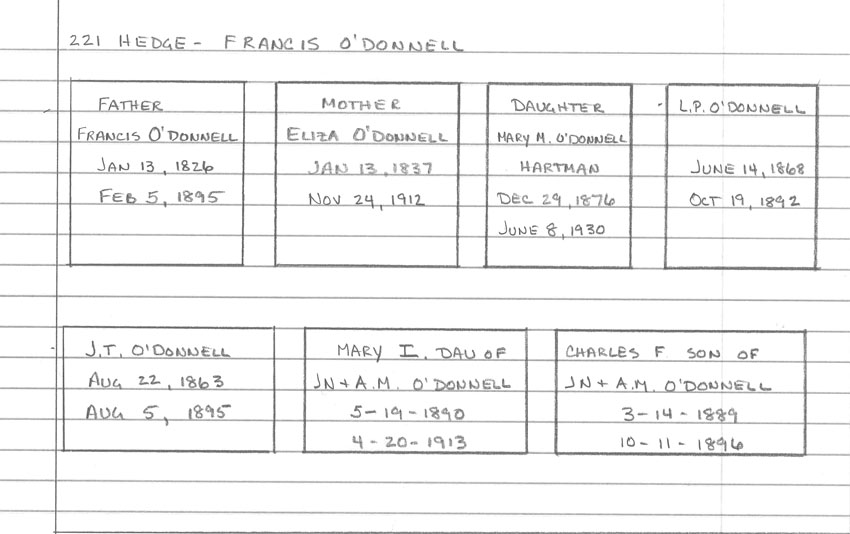 221 HEDGE - FRANCIS O'DONNELL
FATHER
FRANCIS O'DONNELL
JAN 13, 1826
FEB 5, 1895
MOTHER
ELIZA O'DONNELL
JAN 13, 1837
NOV 24, 1912
DAUGHTER
MARY M. O'DONNELL
HARTMAN
DEC 29, 1876
JUNE 8, 1930
L.P. O'DONNELL
JUNE 14, 1868
OCT 19, 1892
J.T. O'DONNELL
AUG 22, 1863
AUG 5, 1895
MARY I. DAU OF
JN + A.M. O'DONNELL
5-19-1890
4-20-1913
CHARLES F. SON OF
JN + A.M. O'DONNELL
3-14-1889
10-11-1896